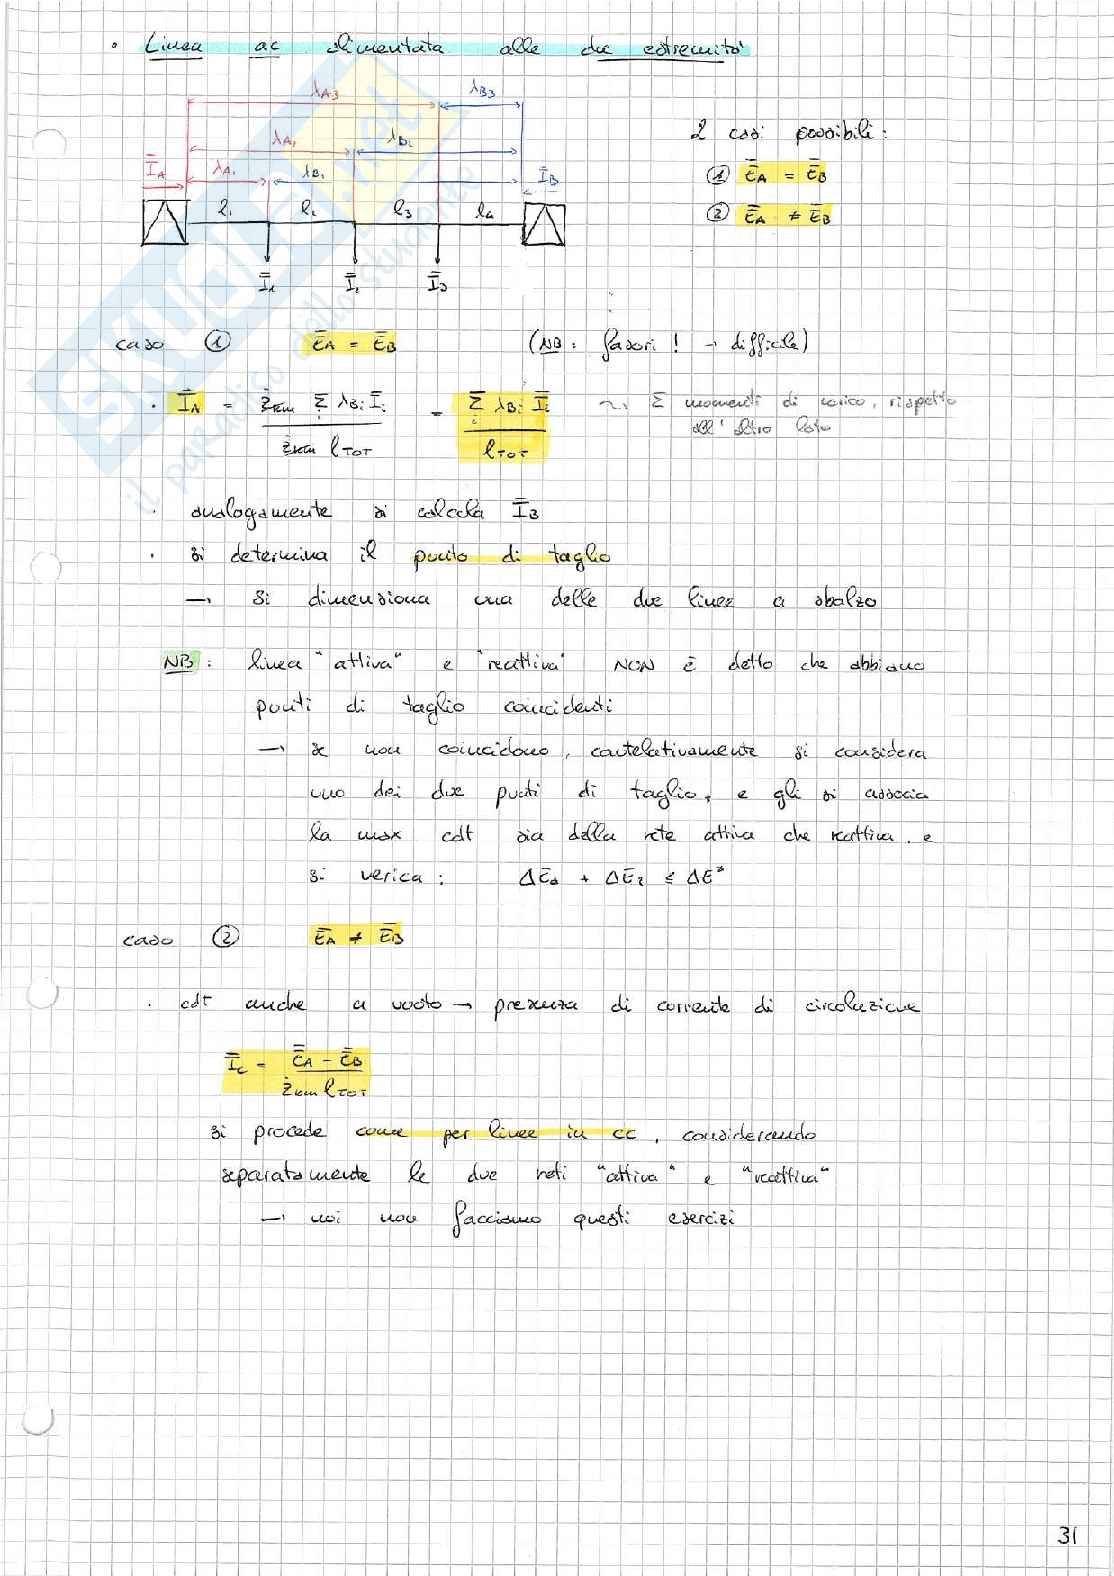 • Linea ac alimentata alle due estremità
λA3 λB3
λA2 λB2
λA1 λB1
ĪA ĪB
l1 l2 l3 l4
Ī1 Ī2 Ī3
2 casi possibili:
① ĒA = ĒB
② ĒA ≠ ĒB
caso ① ĒA = ĒB (NB: fasori! → difficile)
• ĪA = żkm Σi λBi Īi / żkm lTOT = Σi λBi Īi / lTOT ~> Σ momenti di carico, rispetto
all'altro lato
• analogamente si calcola ĪB
• si determina il punto di taglio
→ si dimensiona una delle due linee a sbalzo
NB: linea "attiva" e "reattiva" NON è detto che abbiano
punti di taglio coincidenti
→ se non coincidono, cautelativamente si considera
uno dei due punti di taglio, e gli si associa
la max cdt sia della rete attiva che reattiva, e
si verica: ΔEa + ΔEr ≤ ΔE*
caso ② ĒA ≠ ĒB
• cdt anche a vuoto → presenza di corrente di circolazione
Īc = ĒA - ĒB / żkm lTOT
si procede come per linee in cc, considerando
separatamente le due reti "attiva" e "reattiva"
→ noi non facciamo questi esercizi
31
il paradiso dello studente